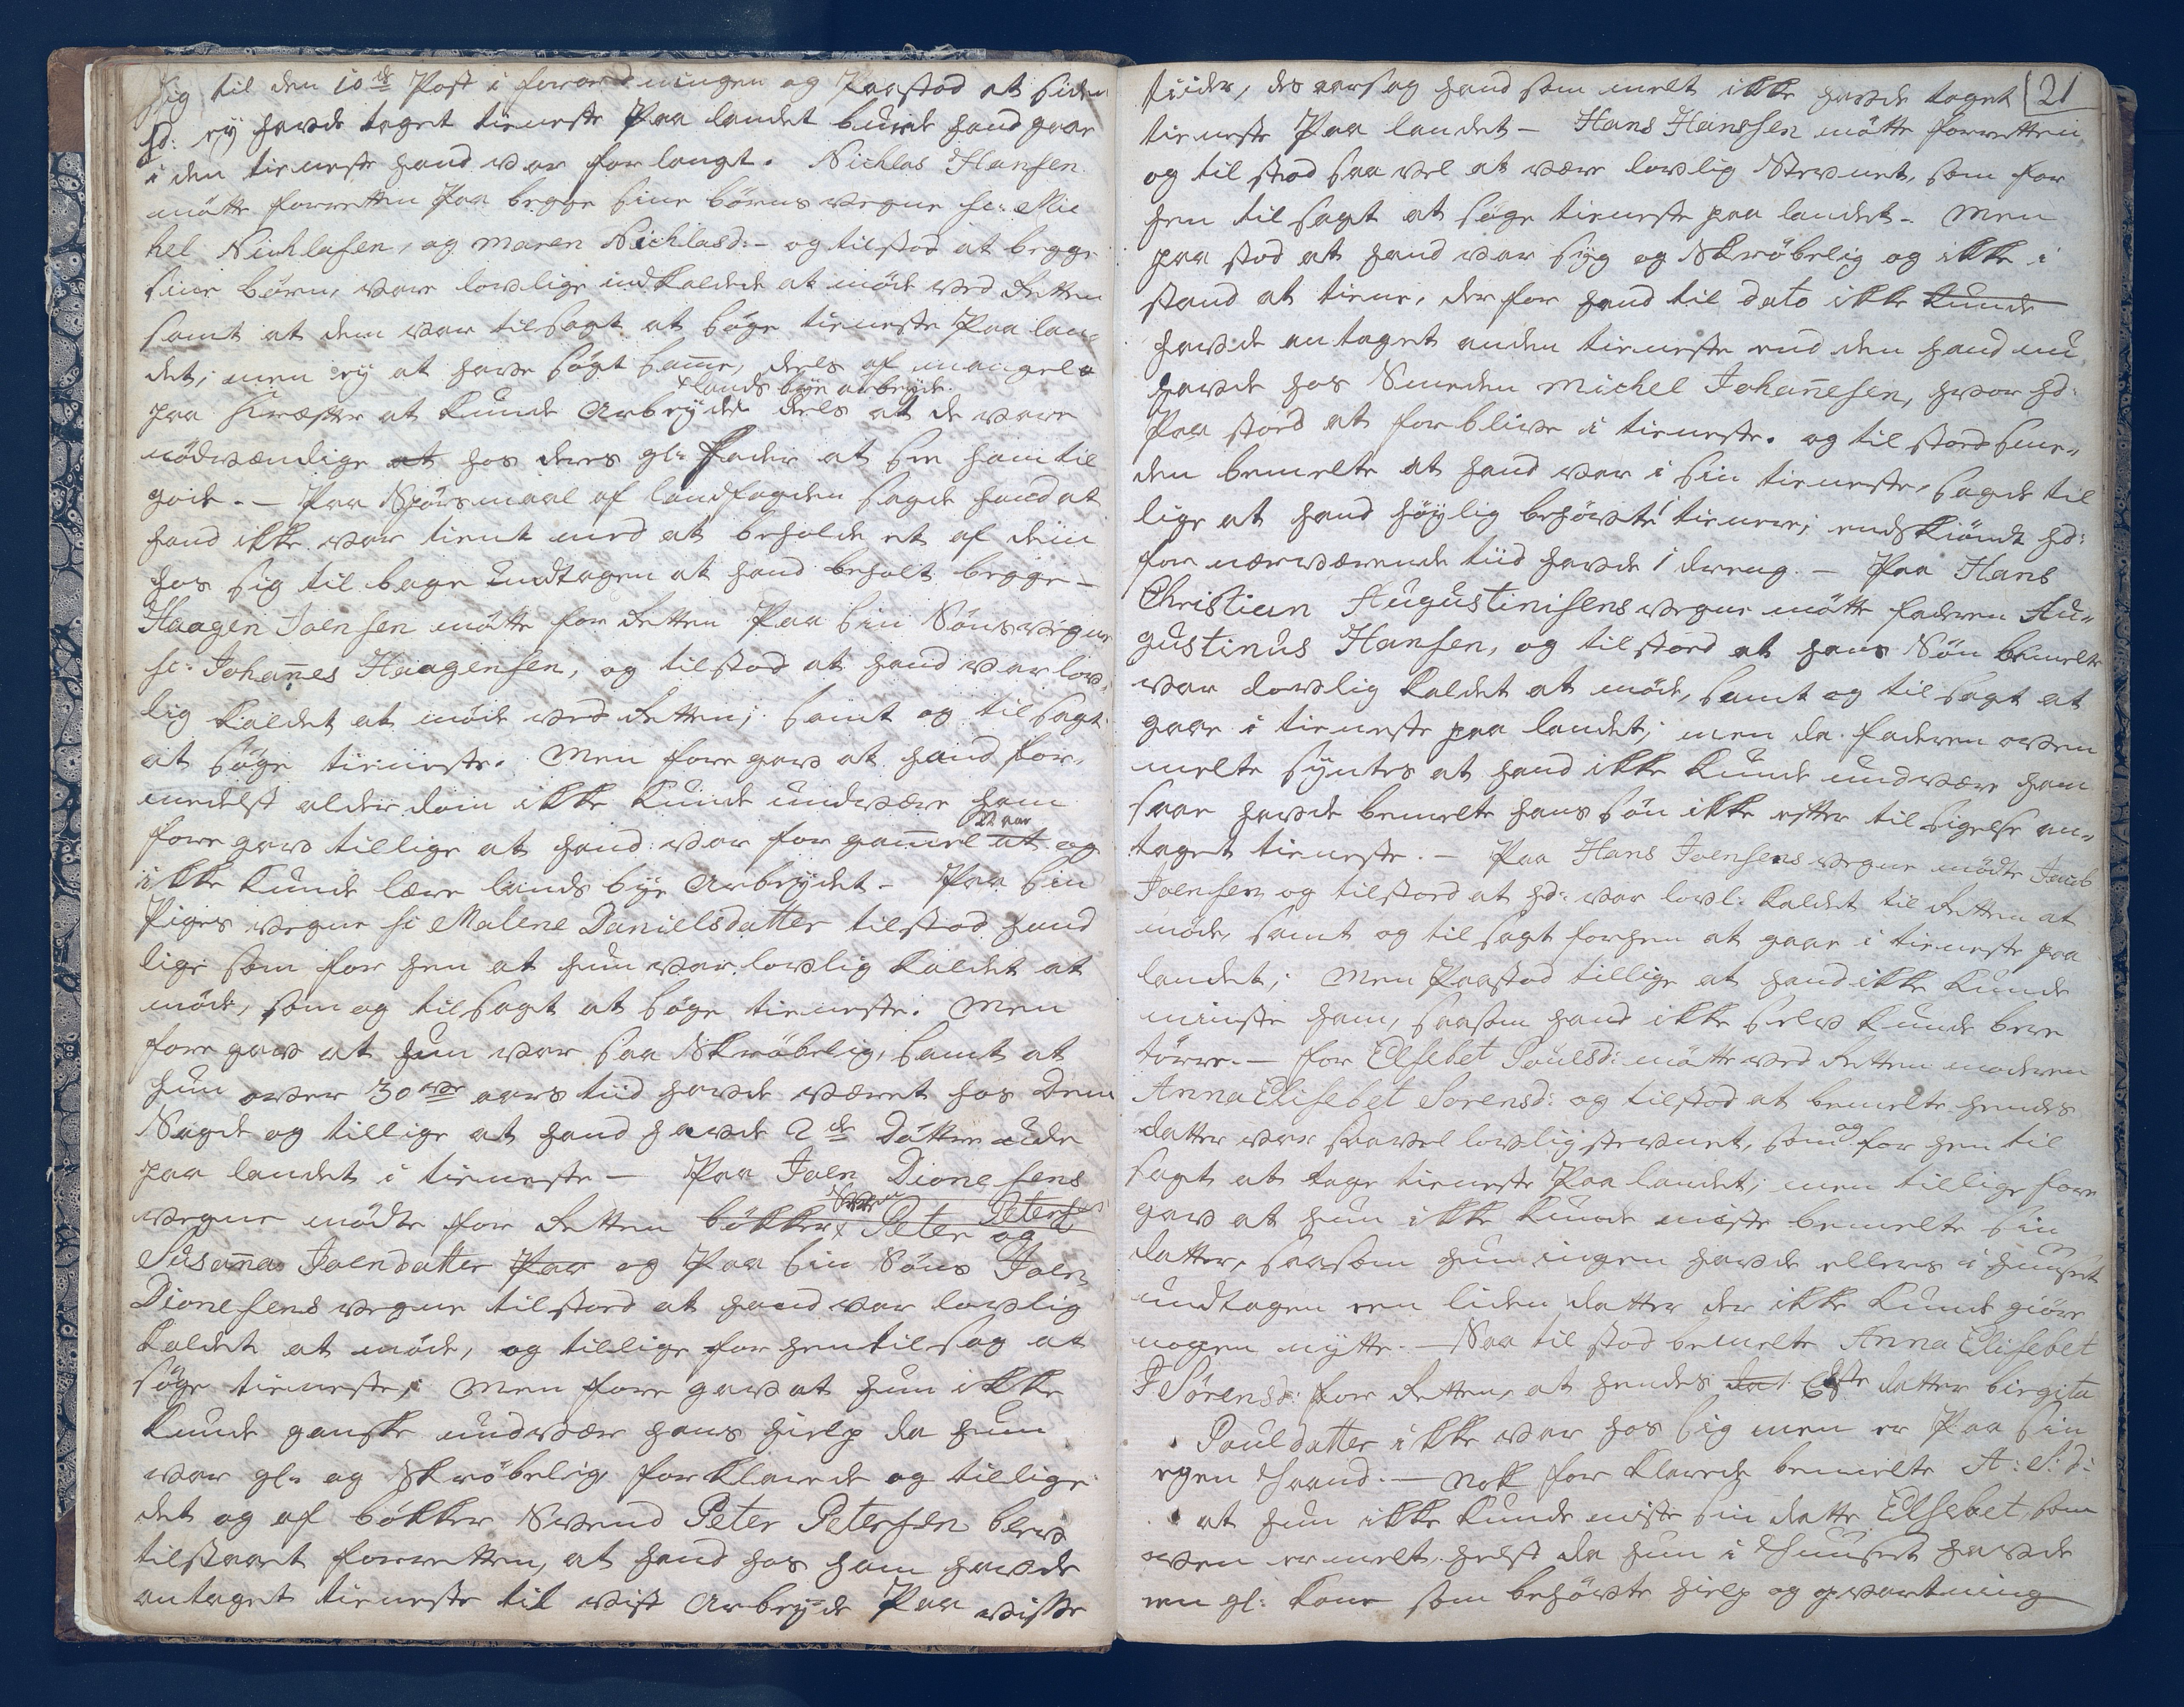 sig til den 10de Post i forordningen og Paastod at siden
hd: ey havde taget tieneste Paa landet burde hand gaae
i den tieneste hand var forlangt. Nichlas Hansen
mötte forretten paa begge sine börns vegne sc: Mic
hel Nichlasen, og Maren Nichlasd:- og tilstod at begge
sine börn, vare lovlige indkaldede at möde ved Retten
samt at dem var tilsagt at söge tieneste Paa lan-
det, men ey at have sögt samme, dels af mangel
paa kræfter at kunde Arbeyde dels at de vare
landsbye arbeyde
nödvændige at hos deres gl: fader at see ham til
gode. - Paa Spörsmaal af landfogden sagde hand at
hand ikke var tient med at beholde et af dem
hos sig tilbage undtagen at hand beholt begge -
Haagen Joensen mötte for Retten Paa sin Söns vegne
sc: Johannes Haagensen, og tilstod at hand var lov-
lig kaldet at möde ved Retten; samt og tilsagt
at söge tieneste. Men foregav at hand for-
medelst alderdom ikke kunde undvære ham
foregav tillige at hand var for gammel at og
22 aar
ikke kunde lære landsbye Arbeydet - Paa sin
Piges vegne sc Malene Danielsdatter tilstod hand
lige som for hen at hun var lovlig kaldet at
möde, som og tilsagt at söge tieneste. Men
foregav at hun var saa Skröbelig, samt at
hun over 30ve aars tiid havde været hos Dem
Sagde og tillige at hand havde 2de Döttre ude
paa landet i tieneste - Paa Joen Dionesens
vegne mödte for Retten bökker Svend Peter Petersen og
Susanna Joendatter Paa og Paa sin Söns Joen
Dionesens vegne tilstod at hand var lovlig
kaldet at möde, og tillige forhen tilsag at
söge tieneste; Men foregav at hun ikke
kunde ganske undvære hans hielp da hun
var gl: og Skröbelig, forklarede og tillige
det og af bökker Svend Peter Petersen blev
tilstaaet forretten, at hand hos ham havde
antaget tieneste til vist Arbeyde Paa visse
tiider, des aarsag hand som melt ikke havde taget 21
tieneste Paa landet - Hans Hanssen mötte forretten
og tilstod saa vel at være lovlig Stevnet, som for
hen tilsagt at söge tieneste paa landet - Men
paastod at hand var syg og Skröbelig og ikke i
stand at tiene, derfor hand til Dato ikke kunde
havde antaget anden tieneste end den hand nu
havde hos Smeden Michel Johannesen, hvor hd:
Paastod at forblive i tieneste. og tilstod Sme-
den bemelte at hand var i sin tieneste, sagde til
lige at hand höylig behövte tienere; endskiöndt hd:
for nærværende tiid havde 1 dreng. - Paa Hans
Christian Augustinisens vegne mötte faderen Au-
gustinus Hansen, og tilstod at hans Sön bemelte
var lovlig kaldet at möde, samt og tilsagt at
gaae i tieneste paa landet; men da faderen oven
melte syntes at hand ikke kunde undvære ham
saa havde bemelte hans sön ikke efter tilsigelse an-
taget tieneste. - Paa Hans Joensens vegne mödte Jacob
Joensen og tilstod at hd: var lovl: kaldet til Retten at
möde, samt og tilsagt forhen at gaae i tieneste paa
landet; Men Paastod tillige at hand ikke kunde
minste ham, saasom hand ikke selv kunde bere
törve. - for Elsebet Poulsd: mötte ved Retten moderen
Anna Elisebet Sorensd: og tilstod at bemelte hendes
datter var saavel lovlig stevnet, som og for hen til
sagt at tage tieneste Paa landet; men tillige fore
gav at hun ikke kunde miste bemelte sin
datter, saasom hun ingen havde ellers i huuset
undtagen een liden datter der ikke kunde giöre
nogen nytte. - Saa tilstod bemelte Anna Elisebet
Sörensd: for Retten, at hendes dat: Elste datter birgita
Pouldatter ikke var hos sig men er Paa sin
egen Haand. - Nok forklarede bemelte A: S: d:
at hun ikke kunde miste sin datte Elsebet, som
oven ermelt, helst da hun i Huuset havde
een gl: kone som behövte hielp og opvartning